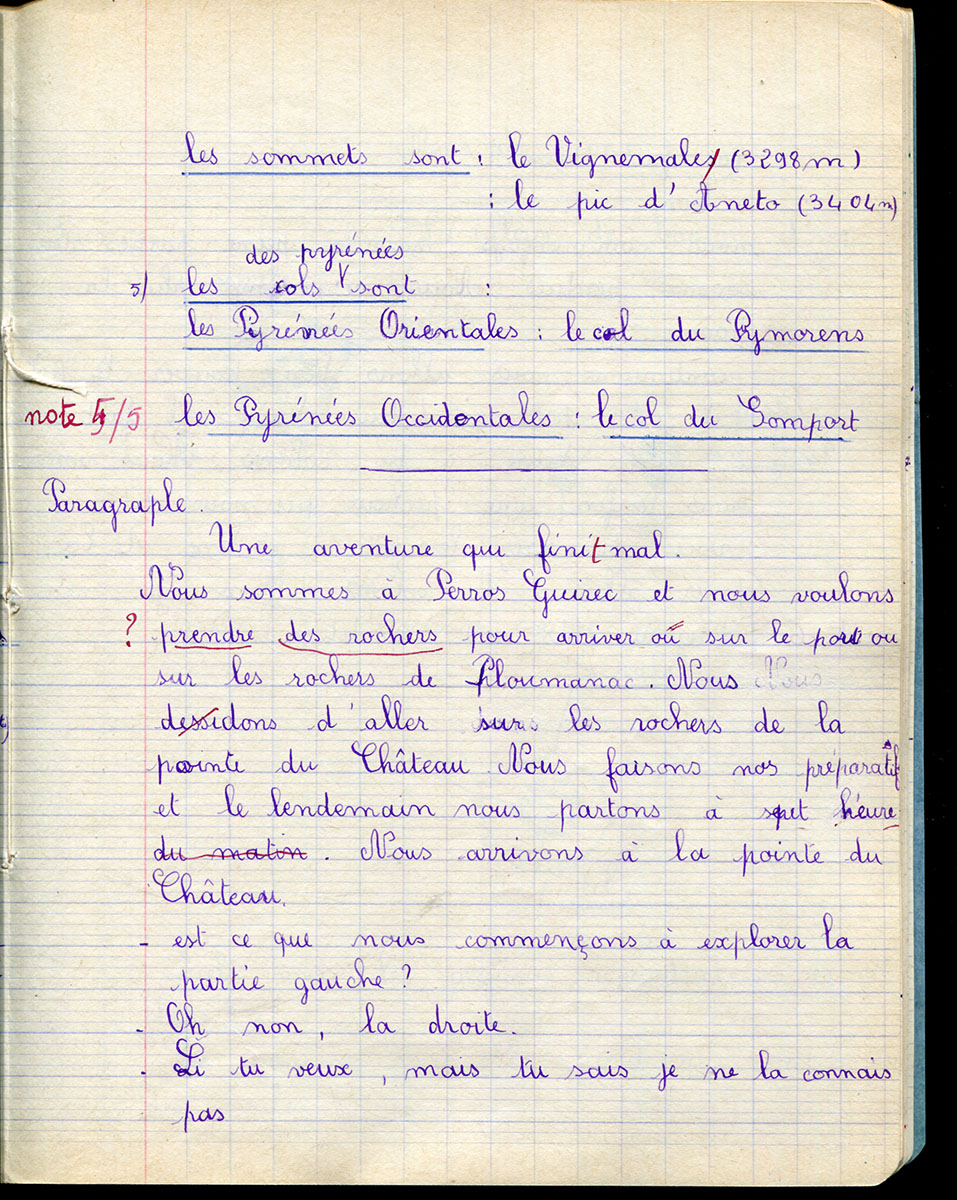 les sommets sont : le Vignemales (3298m)
: le pic d'Aneto (3404m)
des pyrénées
5/ les cols sont :
les Pyrénées Orientales : le col du Pymorens
note 5/5 les Pyrénées Occidentales : le col du Somport
Paragraple.
Une aventure qui finit mal.
Nous sommes à Perros Guirec et nous voulons
? prendre des rochers pour arriver où sur le port ou
sur les rochers de Ploumanac. Nous Nous
dessidons d'aller sur les rochers de la
pointe du Château Nous faisons nos préparatif
et le lendemain nous partons à sept heure
du matin. Nous arrivons à la pointe du
Château.
- est ce que nous commençons à explorer la
partie gauche ?
- Oh non, la droite.
- Si tu veux, mais tu sais je ne la connais
pas